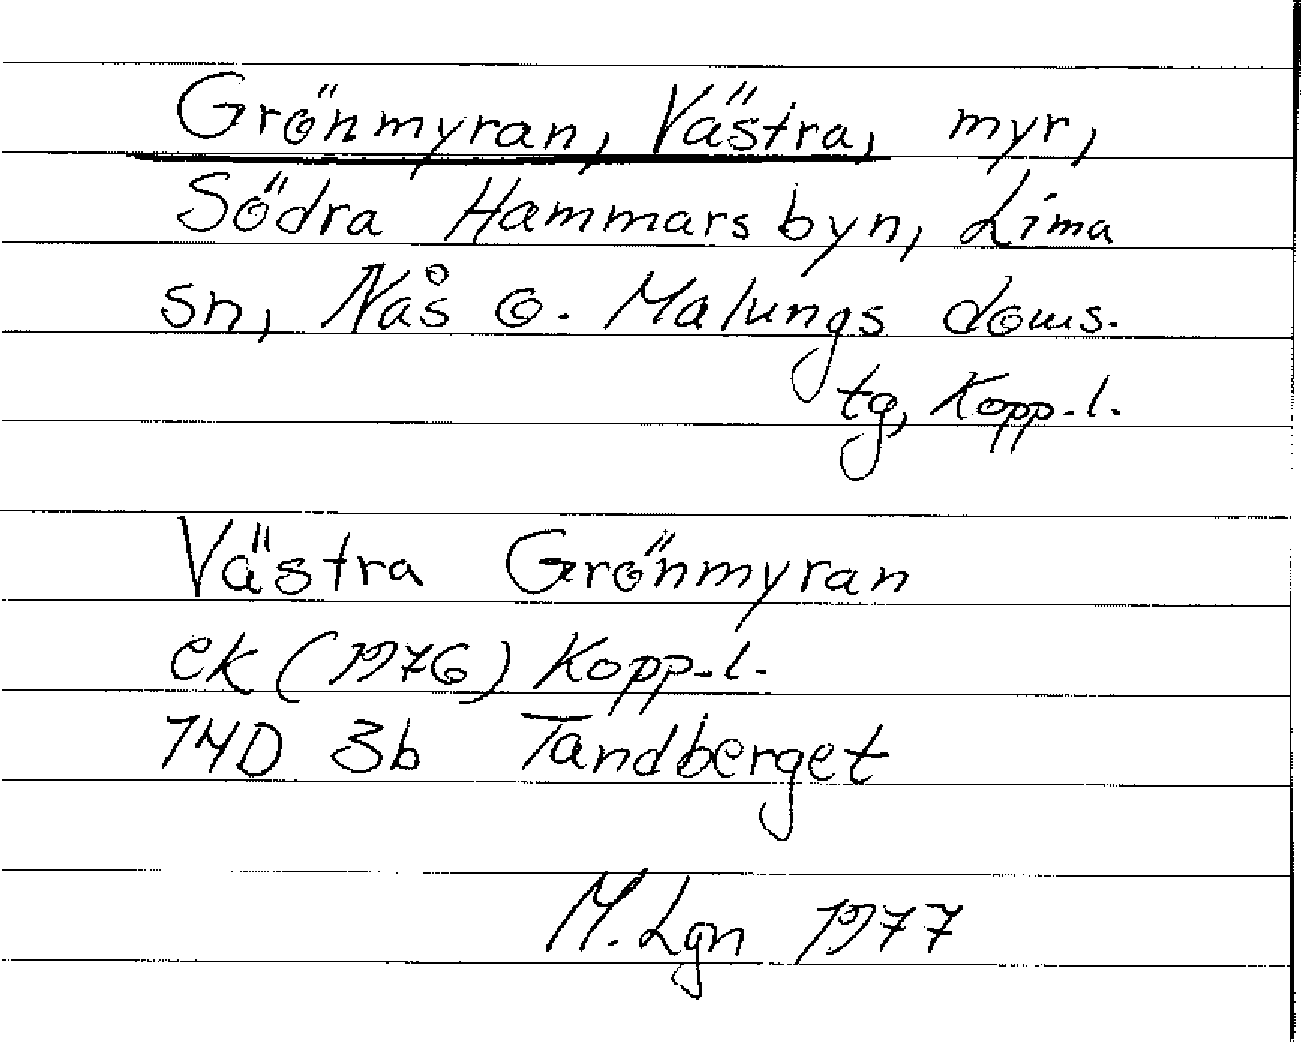 Grönmyran, Västra, myr,
Södra Hammarsbyn, Lima
sn, Nås o. Malungs doms.
tg, Kopp.l.
Västra Grönmyran
ek (1976) Kopp.l.
14D 3b Tandberget
M.Lgn 1977